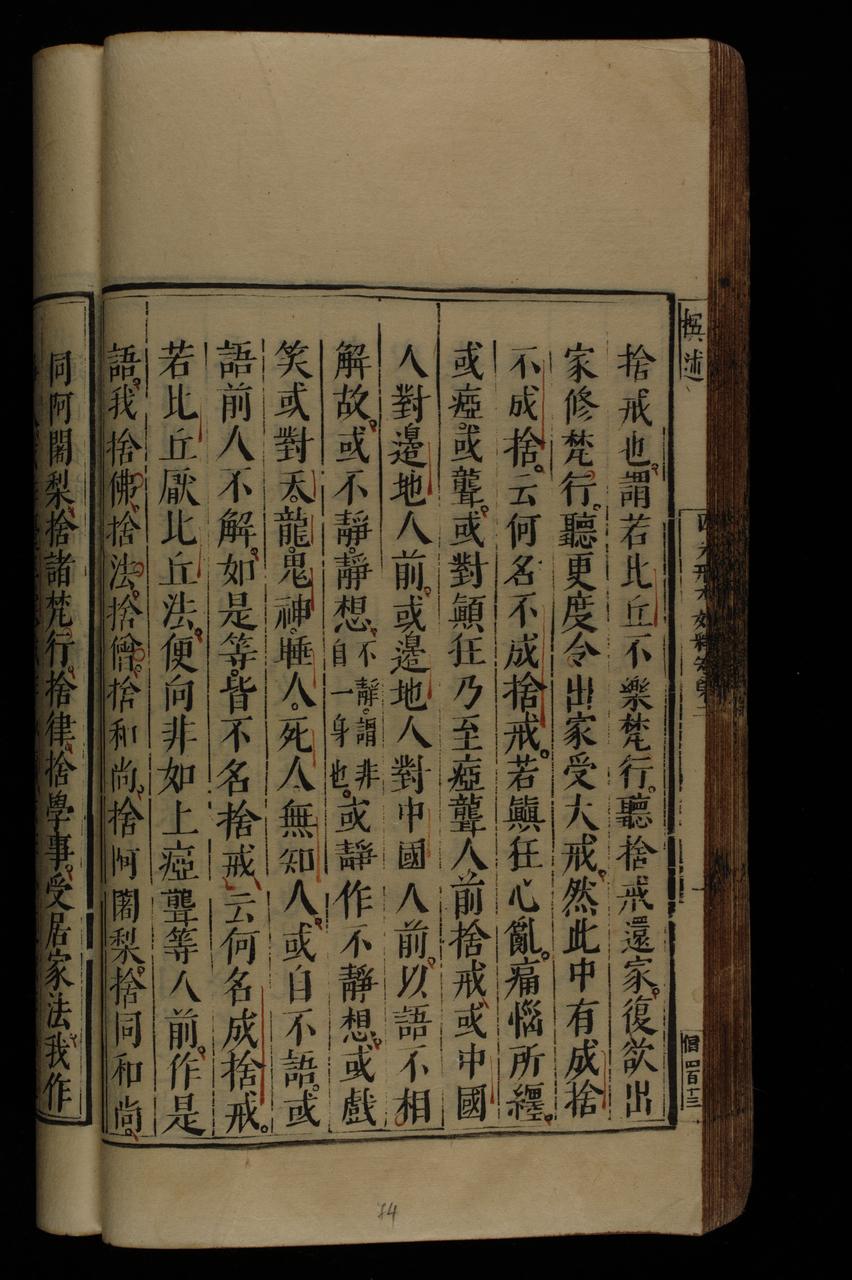 捨戒也。謂若比丘不樂梵行。聽捨戒還家。復欲出
家修梵行。聽更度令出家受大戒。然此中有成捨
不成捨。云何名不成捨戒。若顚狂心亂。痛惱所纏。
或瘂。或聾。或對顚狂乃至瘂聾人前捨戒。或中國
人對邊地人前。或邊地人對中國人前。以語不相
解故。或不靜。靜想。不靜。謂非自一身也。或靜作不靜想。或戲
笑或對天。龍。鬼神。睡人。死人。無知人。或自不語。或
語前人不解。如是等。皆不名捨戒。云何名成捨戒。
若比丘厭比丘法。便向非如上瘂聾等人前。作是
語。我捨佛。捨法。捨僧。捨和尚。捨阿闍梨。捨同和尚。
同阿闍梨。捨諸梵行。捨律。捨學事。受居家法。我作
撰述
佀四百十三
84